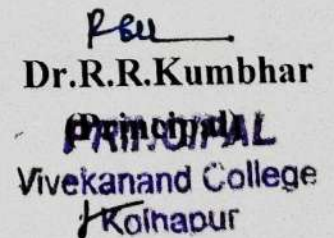 Dr.R.R.Kumbhar
(Principal)
PRINCIPAL
Vivekanand College
Kolhapur